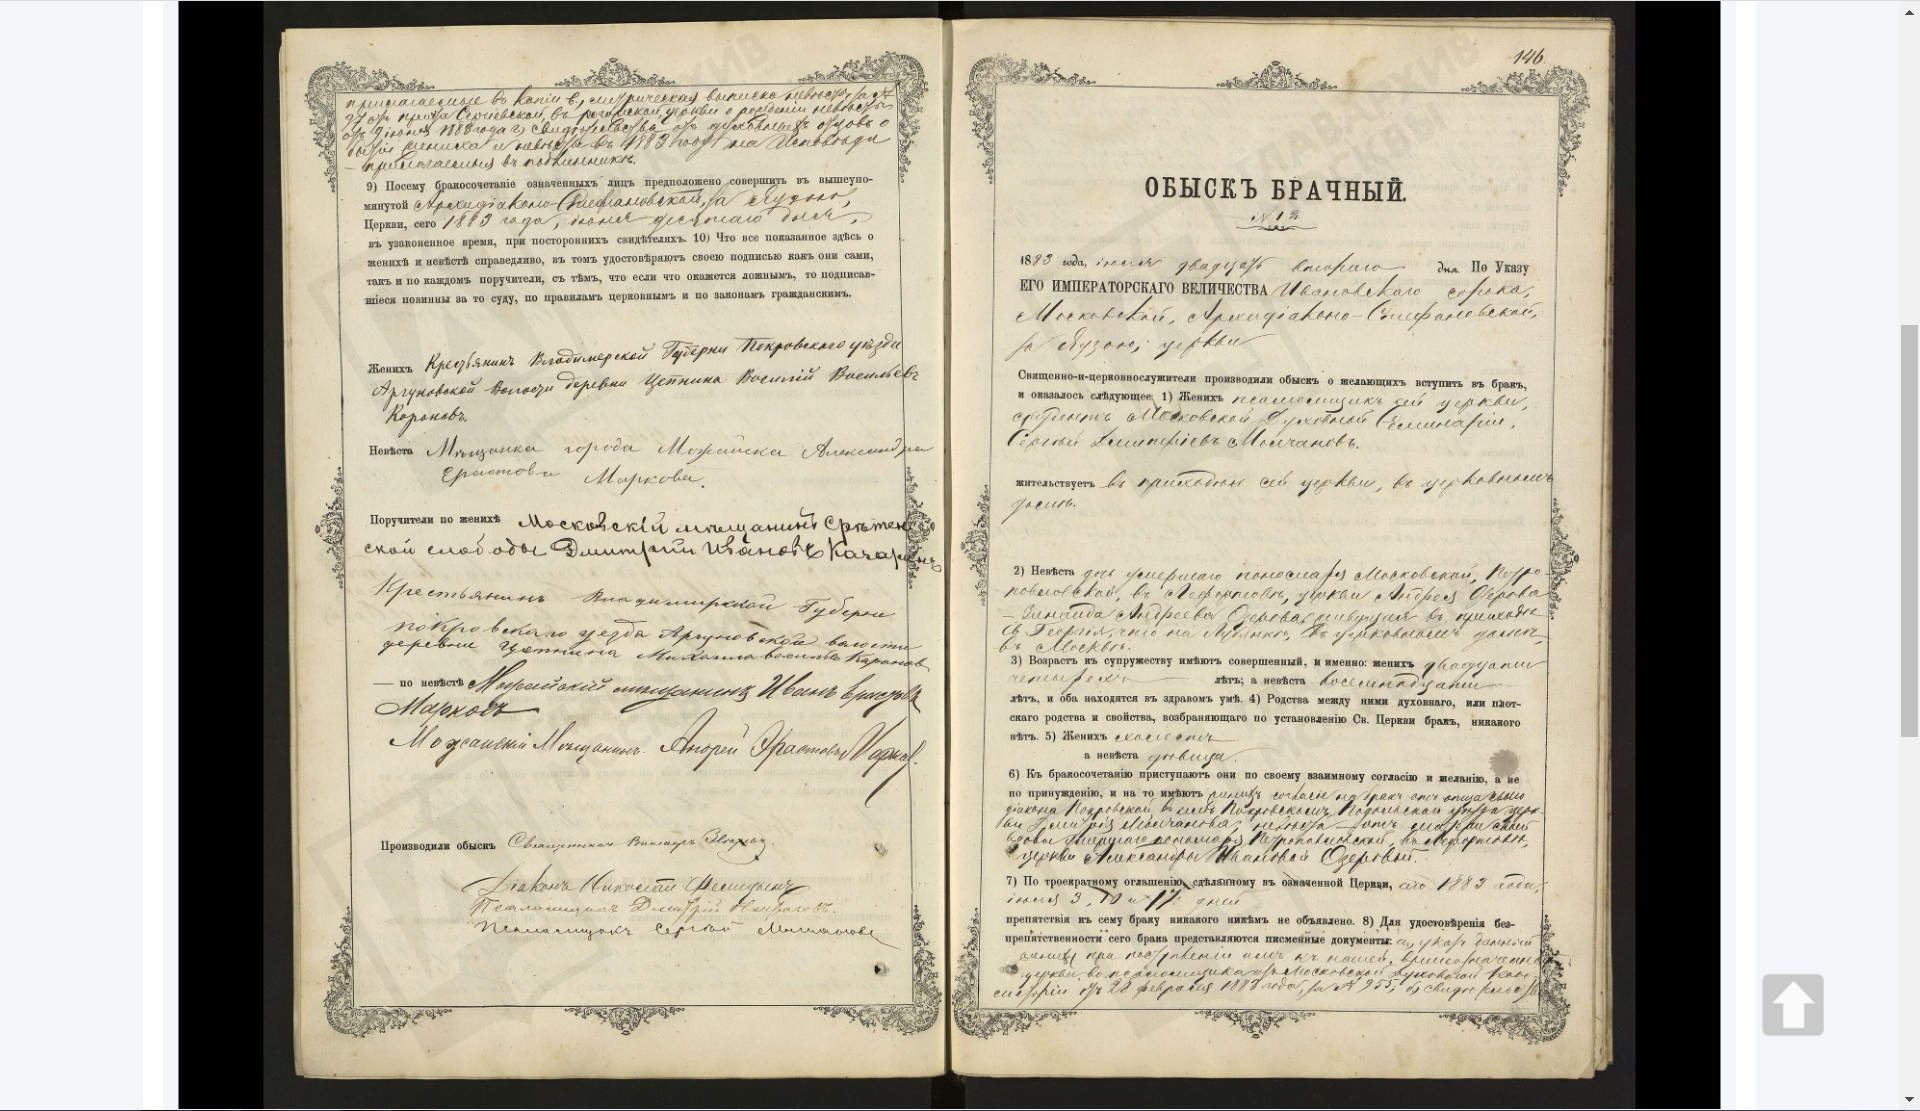 прилагаемые въ копіи в, метрическая выписка невѣсты за №
церкви о рожденіи невѣсты
1883 года г) свидѣтельства отъ духовныхъ отцовъ о
бытіи жениха и невѣсты въ 1883 году на Исповѣди
– прилагаемыя въ подлинникѣ.
9) Посему бракосочетаніе означенныхъ лицъ предположено совершить въ вышеупо-
мянутой Архидіаконо-Стефановской, за Яузою,
Церкви, сего 1883 года, іюня десятаго дня,
въ узаконенное время, при постороннихъ свидѣтеляхъ. 10) Что все показанное здѣсь о
женихѣ и невѣстѣ справедливо, въ томъ удостовѣряютъ своею подписью какъ они сами,
такъ и по каждомъ поручители, съ тѣмъ, что если что окажется ложнымъ, то подписав-
шіеся повинны за то суду, по правиламъ церковнымъ и по законамъ гражданскимъ.
Женихъ Крестьянинъ Владимерской Губерни Покровскаго уѣзда
Аргуновской Волости деревни Цепнина Василій Васильевъ
Карановъ.
Невѣста Мѣщанка города Можайска Александра
Ерастова Маркова.
Поручители по женихѣ Московскій мѣщанинъ Срѣтен
ской слободы Дмитрій Ивановъ
Крестьянинъ Владимирской Губерни
покровскаго уезда Аргуновской волости
деревни Цепнина Михаила Васильевъ Каранов
— по невѣстѣ Можайскій мещанинъ Иванъ Ерастовъ
Марковъ
Можайскій Мѣщанинъ. Андрей Ерастовъ Марков.
Производили обыскъ Священникъ Викторъ
Діаконъ Николай
Псаломщикъ Дмитрій
Псаломщикъ Сергѣй Молчановъ
146
ОБЫСКЪ БРАЧНЫЙ.
№ 12
1883 года, іюня двадцать втораго дня По Указу
ЕГО ИМПЕРАТОРСКАГО ВЕЛИЧЕСТВА Ивановскаго сорока,
Московской, Архидіаконо-Стефановской,
за Яузою, церкви
Священно-и-церковнослужители производили обыскъ о желающихъ вступить въ бракъ,
и оказалось слѣдующее: 1) Женихъ псаломщикъ сей церкви,
студентъ Московской Духовной Семинаріи,
Сергѣй Дмитріевъ Молчановъ.
жительствуетъ въ приходѣ сей церкви, въ церковномъ
домѣ.
2) Невѣста дочь умершаго пономаря Московской, Петро-
павловской, въ Лефортовѣ, церкви Андрея Озерова
– Зинаида Андреева Озерова, живущая въ приходѣ
Св. Георгія, что на Лубянкѣ, въ церковномъ домѣ,
въ Москвѣ.
3) Возрастъ къ супружеству имѣютъ совершенный, и именно: женихъ двадцати
четырехъ лѣтъ; а невѣста восемнадцати
лѣтъ, и оба находятся въ здравомъ умѣ. 4) Родства между ними духовнаго, или плот-
скаго родства и свойства, возбраняющаго по установленію Св. Церкви бракъ, никакого
нѣтъ. 5) Женихъ холостъ
а невѣста дѣвица.
6) Къ бракосочетанію приступаютъ они по своему взаимному согласію и желанію, а не
по принужденію, и на то имѣютъ женихъ согласіе на бракъ отъ отца своего
діакона Покровской, въ селѣ Покровскомъ, Подольскаго уѣзда церк-
ви Дмитрія Молчанова, невѣста – отъ матери своей
вдовы умершаго пономаря Петропавловской, въ Лефортовѣ,
церкви Александры Ивановой Озеровой.
7) По троекратному оглашенію, сдѣланному въ означенной Церкви, сего 1883 года,
іюня 3, 10 и 17 дней
препятствія къ сему браку никакого никѣмъ не объявлено. 8) Для удостовѣренія без-
препятственности сего брака представляются писменные документы: а) указъ данный
жениху при поступленіи имъ къ нашей, вышеозначенной
церкви, во псаломщика изъ Московской Духовной Кон-
систоріи отъ 28 февраля 1883 года, за № 955, б) свидѣтельство